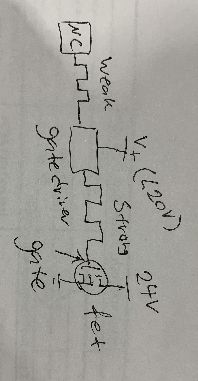 NC
weak
V+ (<20V)
gate driver
Strong
24V
gate
fet